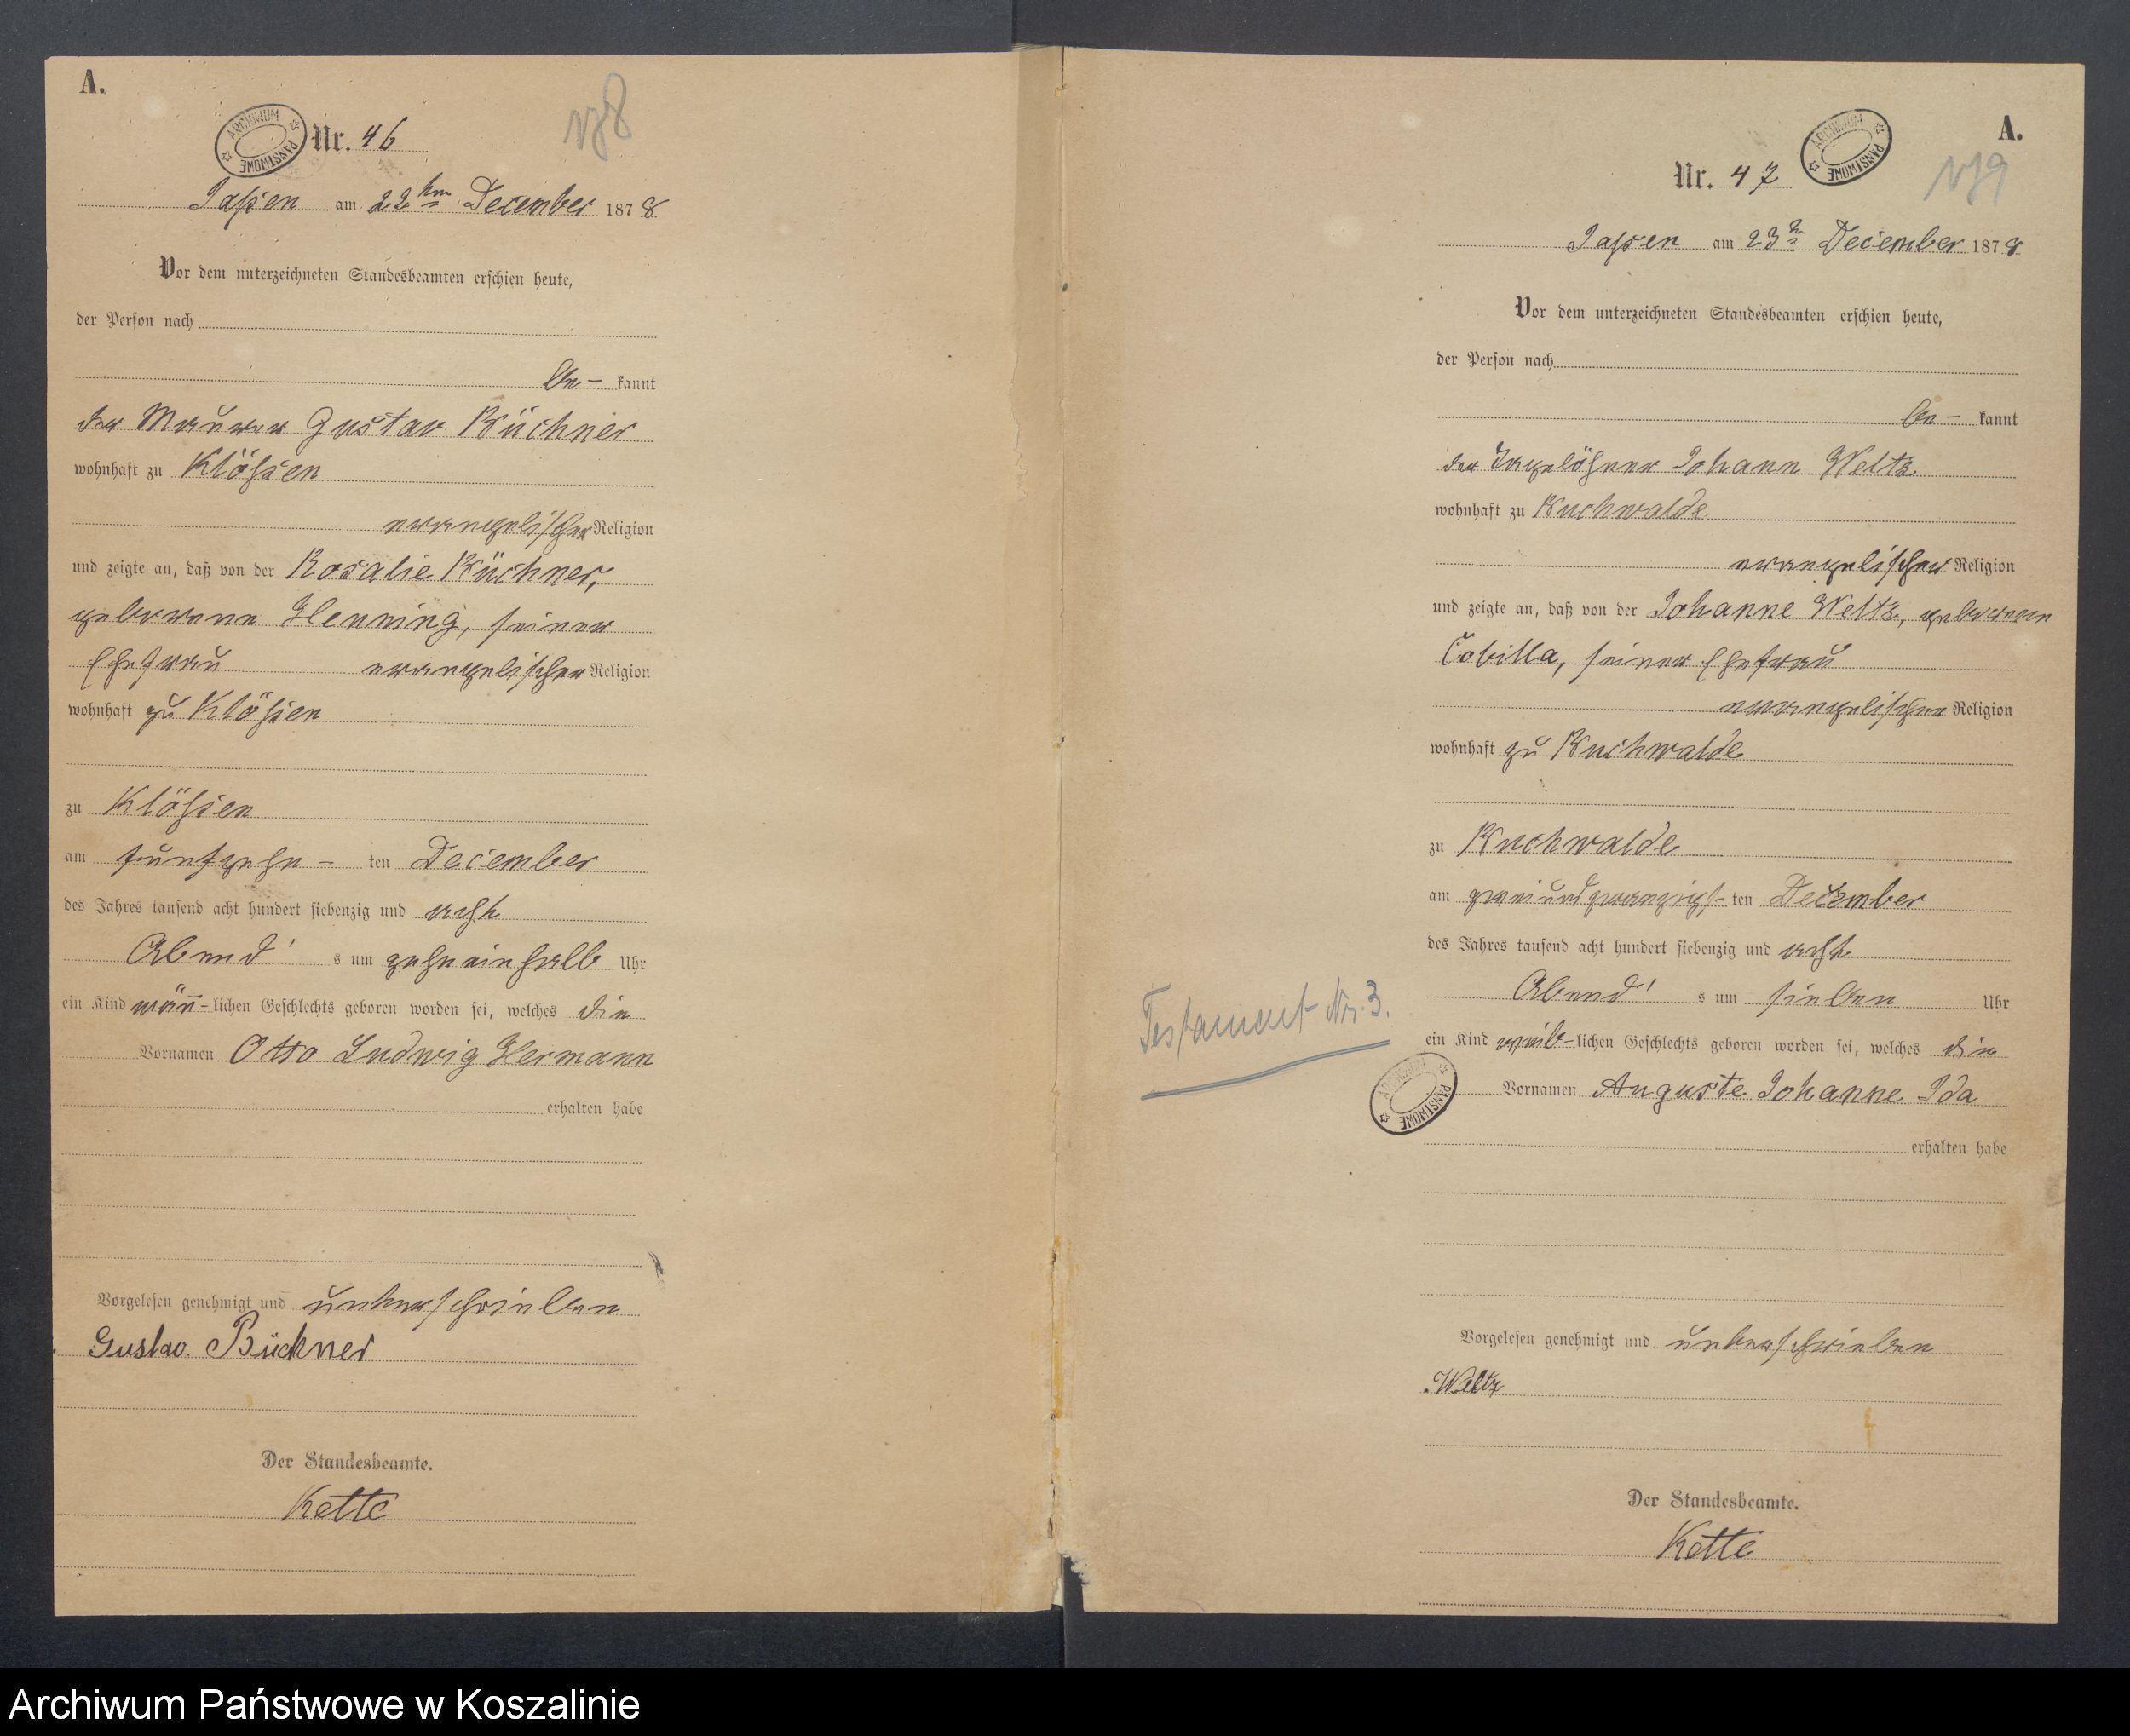 A.
ARCHIWUM PAŃSTWOWE
Nr. 46
Jassen am 22ten December 1878
Vor dem unterzeichneten Standesbeamten erschien heute,
der Person nach
be- kannt
der Maurer Gustav Büchner
wohnhaft zu Klössen
evangelischer Religion
und zeigte an, daß von der Rosalie Büchner,
geborene Henning, seiner
Ehefrau evangelischer Religion
wohnhaft zu Klössen
zu Klössen
am fünfzehn- ten December
des Jahres tausend acht hundert siebenzig und acht
Abend's um zehneinhalb Uhr
ein Kind männ-lichen Geschlechts geboren worden sei, welches die
Vornamen Otto Ludwig Hermann
erhalten habe
Vorgelesen genehmigt und unterschrieben
Gustav Bückner
Der Standesbeamte.
Kette
A.
ARCHIWUM PAŃSTWOWE
Nr. 47
Jassen am 23n December 1878
Vor dem unterzeichneten Standesbeamten erschien heute,
der Person nach
be- kannt
der Tagelöhner Johann Weltz
wohnhaft zu Buchwalde
evangelischer Religion
und zeigte an, daß von der Johanne Weltz, geborenen
Cobilla, seiner Ehefrau
evangelischer Religion
wohnhaft zu Buchwalde
zu Buchwalde
am zweiundzwanzigs-ten December
des Jahres tausend acht hundert siebenzig und acht
Abend's um sieben Uhr
ein Kind weib-lichen Geschlechts geboren worden sei, welches die
Vornamen Auguste Johanne Ida
erhalten habe
Testament Nr. 3.
ARCHIWUM PAŃSTWOWE
Vorgelesen genehmigt und unterschrieben
Weltz
Der Standesbeamte.
Kette
Archiwum Państwowe w Koszalinie